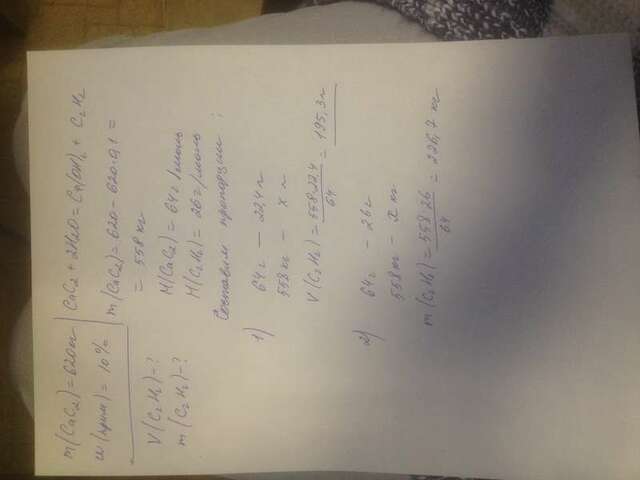 m(CaC₂) = 620 кг
w(прим) = 10%
V(C₂H₂) - ?
m(C₂H₂) - ?
CaC₂ + 2H₂O = Ca(OH)₂ + C₂H₂
m(CaC₂) = 620 - 620·0,1 =
= 558 кг
M(CaC₂) = 64 г/моль
M(C₂H₂) = 26 г/моль
Составим пропорции:
1) 64 г — 22,4 л
558 кг — x л
V(C₂H₂) = 558·22,4/64 = 195,3 л
2) 64 г — 26 г
558 кг — x кг
m(C₂H₂) = 558·26/64 = 226,7 кг